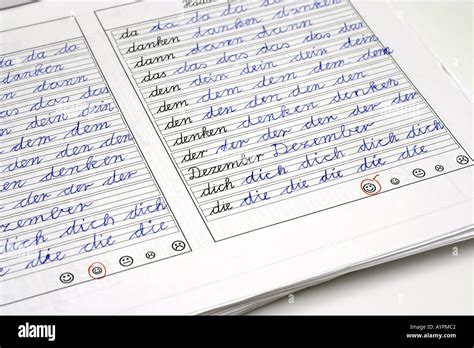 da da da
danken
dann
das das das
dein dein
dem dem
den den
denken
der der der
zember
dich dich dich
die die die
da da da da da
danken danken
dann dann dann
das das das das das
dein dein dein dein
dem dem dem dem
den den den den
denken denken denken
der der der der der
Dezember Dezember
dich dich dich dich dich
die die die die die
alamy
Image ID: AYPMC2
www.alamy.com